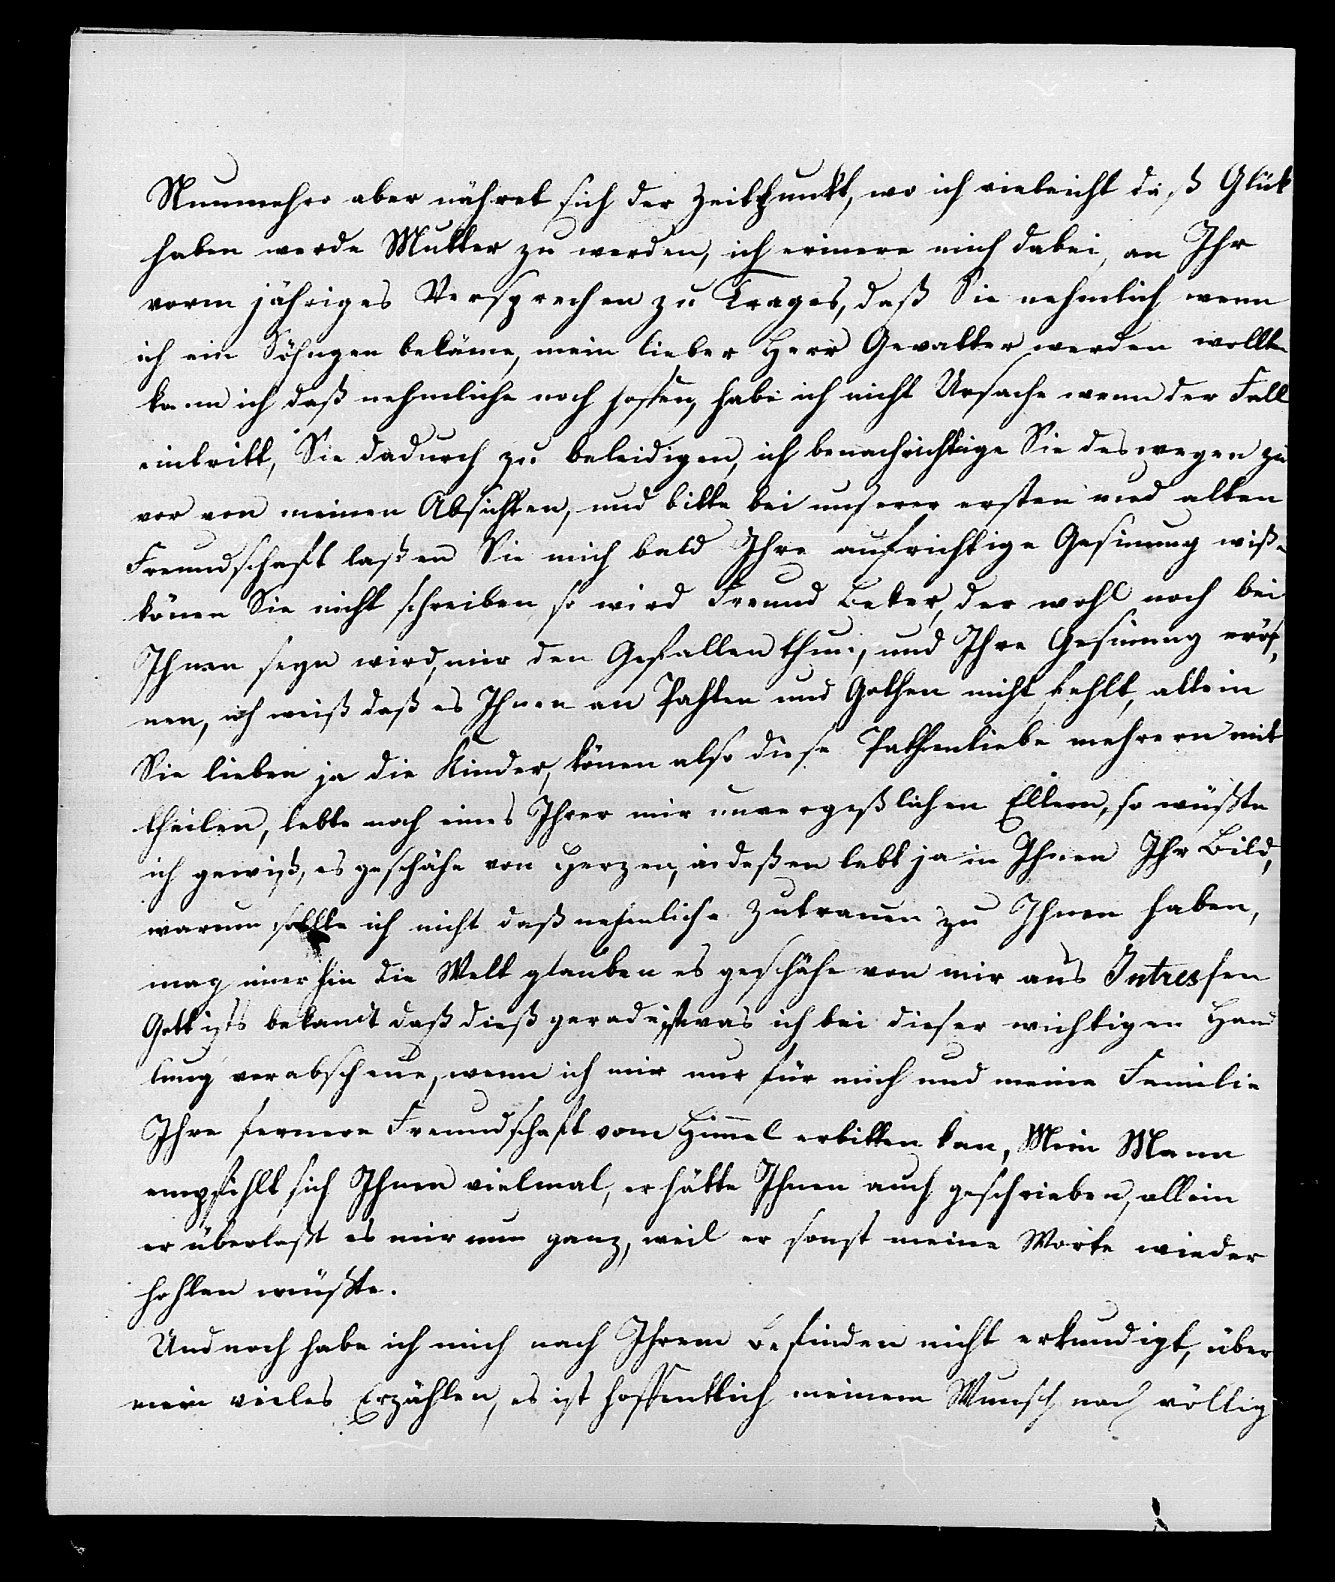 Nunmehro aber nähret sich der Zeitpunkt, wo ich vieleicht daß Glük
haben werde Mutter zu werden, ich erinere mich dabei, an Ihr
vorm jähriges Versprechen zu Trages, daß Sie nehmlich wenn
ich ein Söhngen bekäme, mein lieber Herr Gevatter werden wollten
kann ich daß nehmliche noch hoffen, habe ich nicht Ursache wenn der Fall
eintritt, Sie dadurch zu beleidigen, ich benachrichtige Sie deswegen zu
vor von meinen Absichten, und bitte bei unserer ersten und alten
Freundschaft laßen Sie mich bald Ihre aufrichtige Gesinung wiße
könen Sie nicht schreiben, so wird Freund Beker, der wohl noch bei
Ihnen seyn wird, mir den Gefallen thun, und Ihre Gesinung eröf,
nen, ich weiß daß es Ihnen an Pahten und Gothen nicht fehlt, allein
Sie lieben ja die Kinder, könen also diese Pathenliebe mehrern mit
theilen, lebte noch eines Ihrer mir unvergeßlichen Eltern, so wüßte
ich gewiß, es geschähe von Herzen, indeßen lebt ja in Ihnen Ihr Bild,
warum sollte ich nicht daß nehmliche Zutrauen zu Ihnen haben,
mag imer hin die Welt glauben es geschähe von mir aus Intressen
Gott ists bekandt daß dieß gerade ist was ich bei dieser wichtigen Hand
lung verabscheue, wenn ich mir nur für mich und meine Familie
Ihre fernere Freundschaft vom Himel erbitten kan, Mein Mann
empfihlt sich Ihnen vielmal, er hätte Ihnen auch geschrieben, allein
er überläßt es mir nun ganz, weil er sonst meine Worte wieder
hohlen müßte.
Und noch habe ich mich nach Ihrem Befinden nicht erkundigt, über
mein vieles Erzählen, es ist hoffentlich meinem Wunsch nach völlig